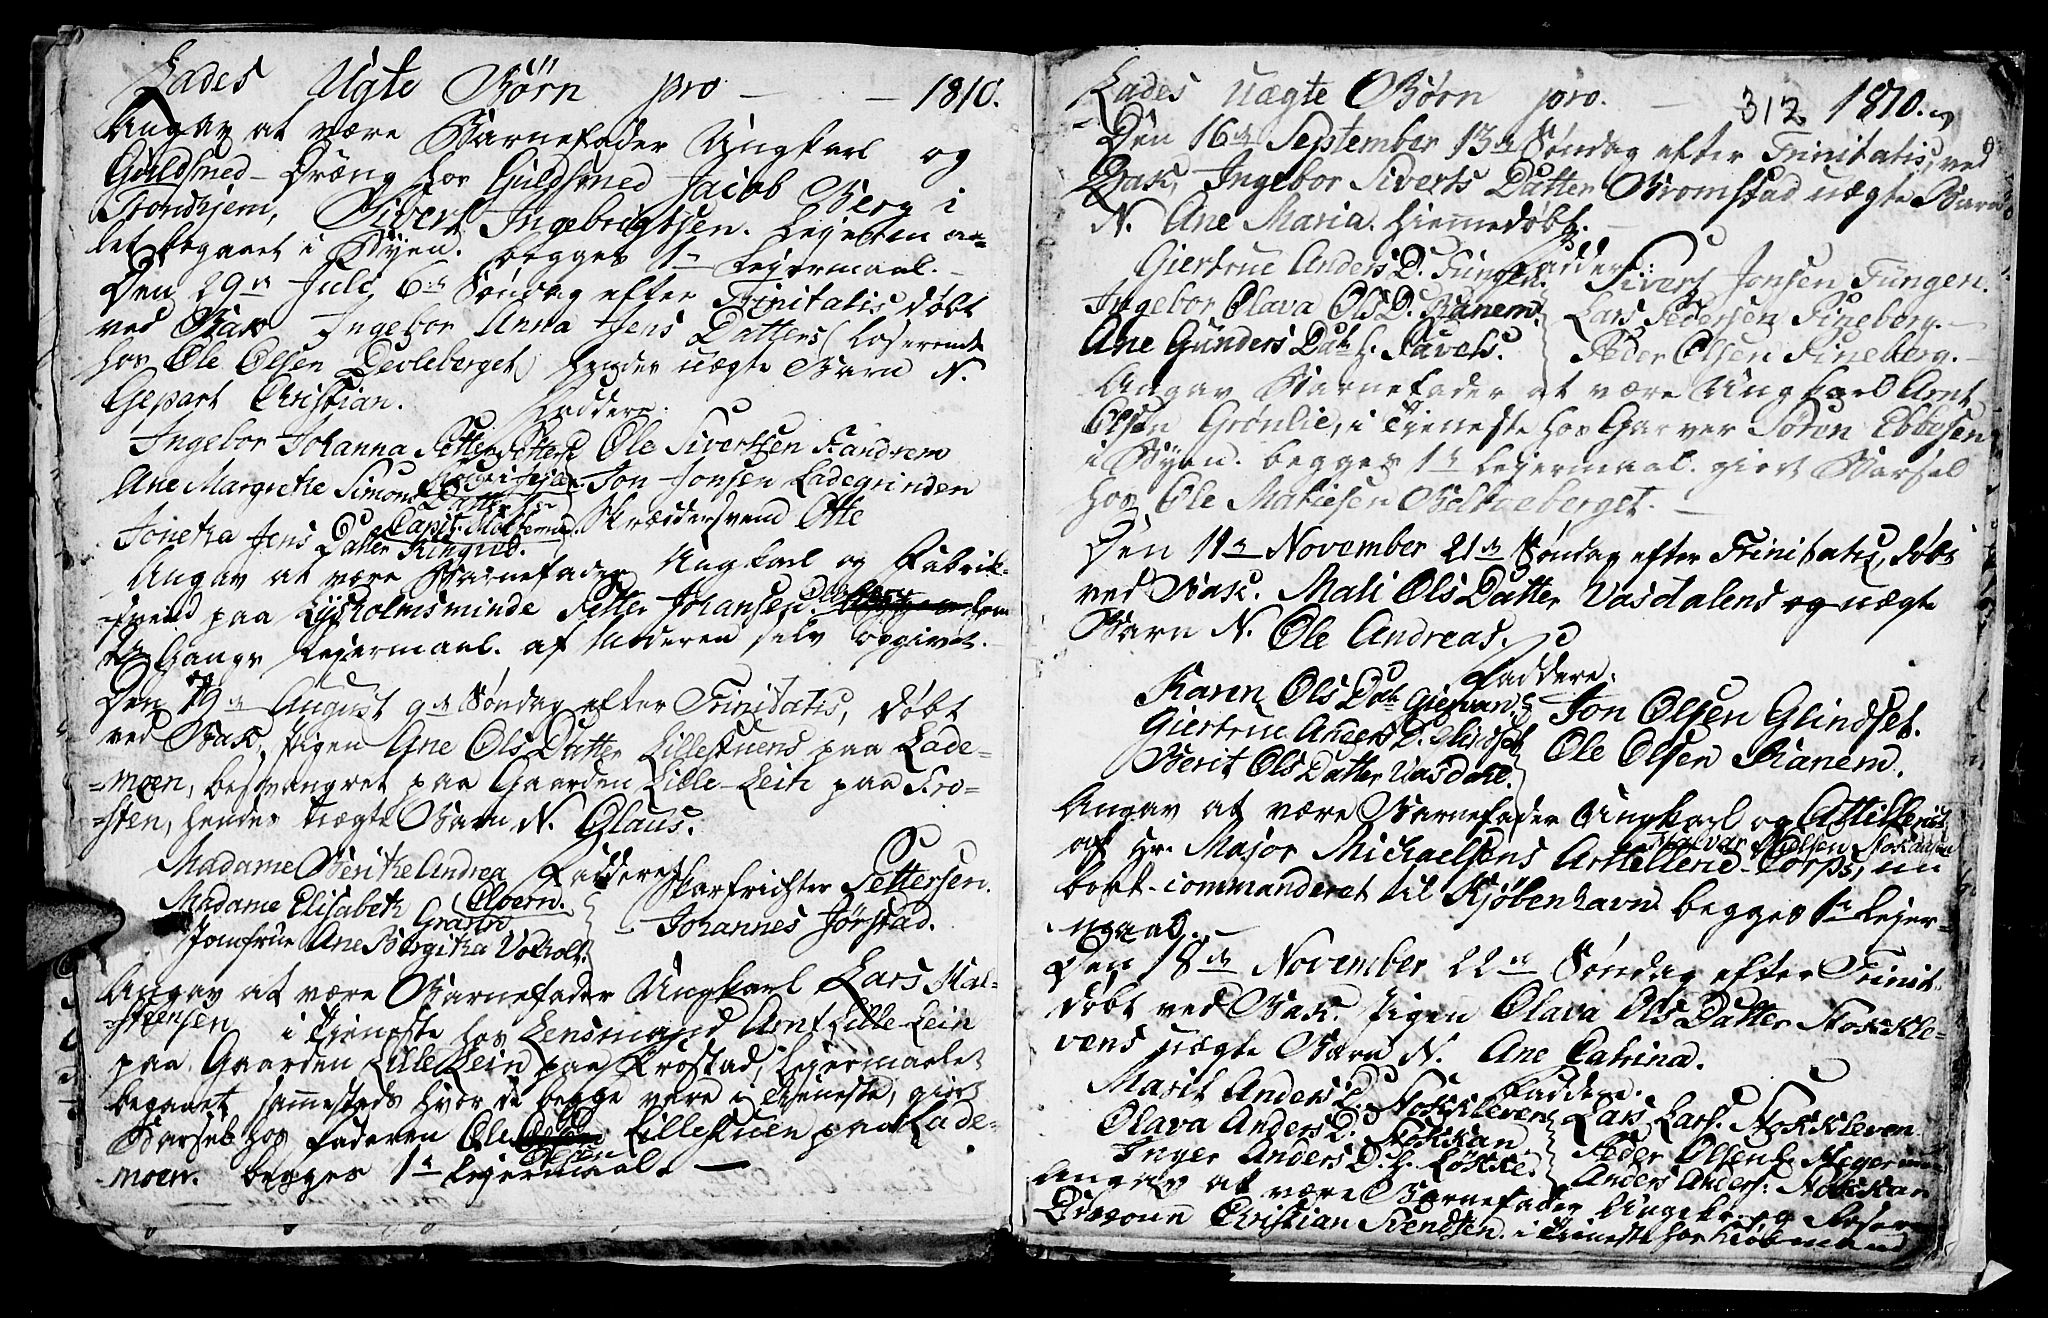 Lades Ugte Børn pro — — 1810.
Angav at være Barnefader Ungkarl og
Guldsmed-Dræng hos Guldsmed Jacob Berg i
Trondhjem, Sivert Ingebrigtsen. Lejerm a-
let begaaet i Byen. begges 1te Lejermaal. —
Den 29de Juli, 6te Søndag efter Trinitatis, døbt
ved Bak. Ingebor Anna Jens Datters (Loserende
hos Ole Olsen Devleberget) hendes uægte Barn N.
Gepart Christian.
Faddere:
Ingebor Johanna Petter Petters D. Ole Sivertsen
Ane Margrethe Simons Datter Jon Jonsen Ladegrinden
Joneka Jens Datter Ringved. Skræddersvend Otte
Capit.
Angav at være Barnefader Ungkarl og Fabrik-
svend paa Lysholmsminde Petter Johansen.
Gangs Lejermaal. af Moderen selv opgivet. —
Den 19de August 9de Søndag efter Trinitatis, døbt
ved Bak. Pigen Ane Ols Datter Lillekuens paa Lade-
=moen, besvangret paa Gaarden Lille-Lein paa Fro-
=sten, hendes uægte Barn N. Claus.
Faddere
Madame Berithe Andrea Skarfrichter Pettersen.
Madame Elisabeth Grann Johannes Jørstad.
Jomfrue Ane Bergitha
Angav at være Barnefader Ungkarl Lars
i Tjeneste hos Lensmand Arnt Lille-Lein
paa Gaarden Lille Lein paa Frostad, Lejermaalet
begaaet sammesteds hvor de begge vare i Tjeneste, giort
Barsel hos Faderen Ole Olsen Lillekuen paa Lade-
moen. begges 1te Lejermaal. —
Lades Uægte Børn pro. — 312 1810.
Den 16de September 13de Søndag efter Trinitatis, ved
Bak, Ingebor Siverts Datter Bromstad uægte Barn
N. Ane Maria. Hiemmedøbt. —
Faddere:
Giertrue Anders D. Tungen. Sivert Jonsen Tungen.
Ingebor Olava Ols D. Ranem. Lars Pedersen Fineberg. —
Ane Gunders Dat. h. Pavels. Peder Olsen Fineberg. —
Angav Barnefader at være Ungkarl Arnt
Olsen Grønlie, i Tjeneste hos Garver Søren Ebbesen
i Byen. begges 1te Lejermaal. giort Barsel
hos Ole Matiesen Belkaeberget. —
Den 11te November 21de Søndag efter Trinitatis, døbt
ved Bak. Mali Ols Datter Vasdalens uægte
Barn N. Ole Andreas.
Faddere:
Karen Ols Dat. Jon Olsen Glindset.
Giertrue Anders D. Glindset Ole Olsen Ranem.
Berit Ols Datter Vasdahl.
Angav at være Barnefader Ungkarl og Attillerist
Halvar Nielsen
af Hr. Major Michaelsens Artellerie-Corps, nu
bort-commanderet til Kjøbenhavn begges 1te Lejer=
maal. —
Den 18de November 22de Søndag efter Trinit.
døbt ved Bak. Pigen Olava Ols Datter Stokkle-
vens uægte Barn N. Ane Catrina.
Faddere.
Marit Anders D. Stokkleven Lars Lars. Stokkleven
Olava Anders D. Stokkan Peder Olsen
Inger Anders D. h. Løkke. Anders Anders. Stokkan
Angav at være Barnefader Ungk. og Reser-
Dragoun Christian Svendsen. i Tieneste hos Kiøbmand